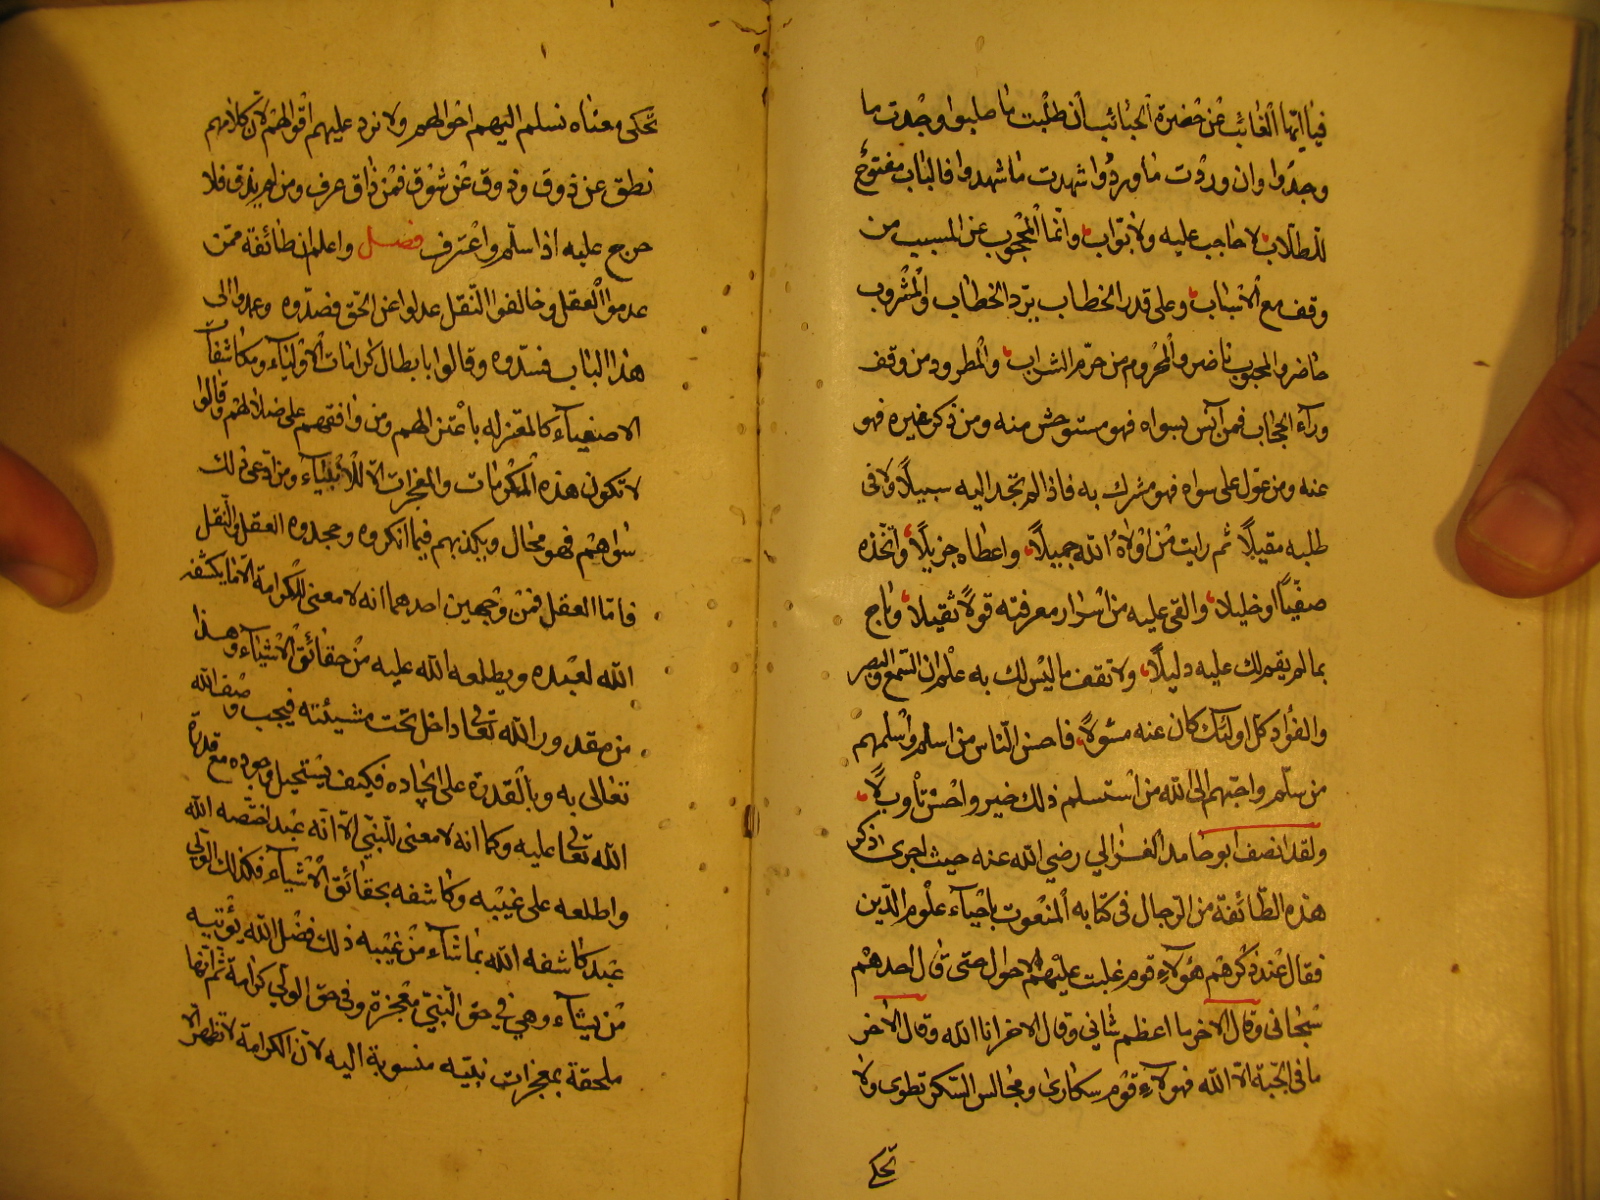 فيا ايها الغائب عن حضرة الحبائب ان طلبت ما طلبوا وجدت ما
وجدوا وان وردت ما وردوا شهدت ما شهدوا فالباب مفتوح
للطلاب لا حاجب عليه ولا بواب وانما المحجوب عن المسبب من
وقف مع الاسباب وعلى قدر الخطاب يرد الخطاب والمشروب
حاضر والمحبوب ناضر والمحروم من حرم الشراب والمطرود من وقف
ورآء الحجاب فمن آنس بسواه فهو مستوحش منه ومن ذكر غيره فهو
عنه ومن عول على سواه فهو مشرك به فاذا لم تجد اليه سبيلا ولا في
طلبه مقيلا ثم رايت من اولاه الله جميلا واعطاه جزيلا واتخذه
صفيا او خليلا والقى عليه من اسرار معرفته قولا ثقيلا وناج
بما لم يقم لك عليه دليلا ولا تقف ما ليس لك به علم ان السمع والبصر
والفؤاد كل اولئك كان عنه مسئولا فاحسن الناس من اسلم واسلمهم
من سلم واحبهم الى الله من استسلم ذلك خير واحسن تأويلا
ولقد انصف ابو حامد الغزالي رضي الله عنه حيث اجرى ذكر
هذه الطائفة من الرجال في كتابه المنعوت باحياء علوم الدين
فقال عند ذكرهم هؤلاء قوم غلبت عليهم الاحوال حتى قال احدهم
سبحاني وقال الاخر ما اعظم شاني وقال الاخر انا الله وقال الاخر
ما في الجبة الا الله فهولاء قوم سكارى ومجالس السكر تطوى ولا
تحكى
تحكى معناه نسلم اليهم احوالهم ولا نرد عليهم اقوالهم لان كلامهم
نطق عن ذوق وذوق عن شوق فمن ذاق عرف ومن لم يذق فلا
حرج عليه اذا سلم واعترف فصل واعلم ان طائفة ممن
عدموا العقل وخالفوا النقل عدلوا عن الحق فصدوه وعمدوا الى
هذا الباب فسدوه وقالوا بابطال كرامات الاولياء ومكاشفات
الاصفيآء كالمعتزله باعتزالهم ومن وافقهم على ضلالهم وقالوا
لا تكون هذه المكرمات والمعجزات الا للانبياء ومن ادعى ذلك
سواهم فهو محال ويكذبهم فيما انكروه وجحدوه العقل والنقل
فاما العقل فمن وجهين احدهما انه لا معنى للكرامة الا ما يكشفه
الله لعبده ويطلعه الله عليه من حقائق الاشياء وهذا
من مقدور الله تعالى داخل تحت مشيئته فيجب وصف الله
تعالى به وبالقدرة على ايجاده فكيف يستحيل وجوده مع قدرة
الله تعالى عليه وكما انه لا معنى للنبي الا انه عبد اختصه الله
واطلعه على غيبه وكاشفه بحقائق الاشيآء فكذلك الولي
عبد كاشفه الله بما شآء من غيبه ذلك فضل الله يؤتيه
من يشآء وهي في حق النبي معجزة وفي حق الولي كرامة ثم انها
ملحقة بمعجزات نبيه منسوبة اليه لان الكرامة لا تظهر الا